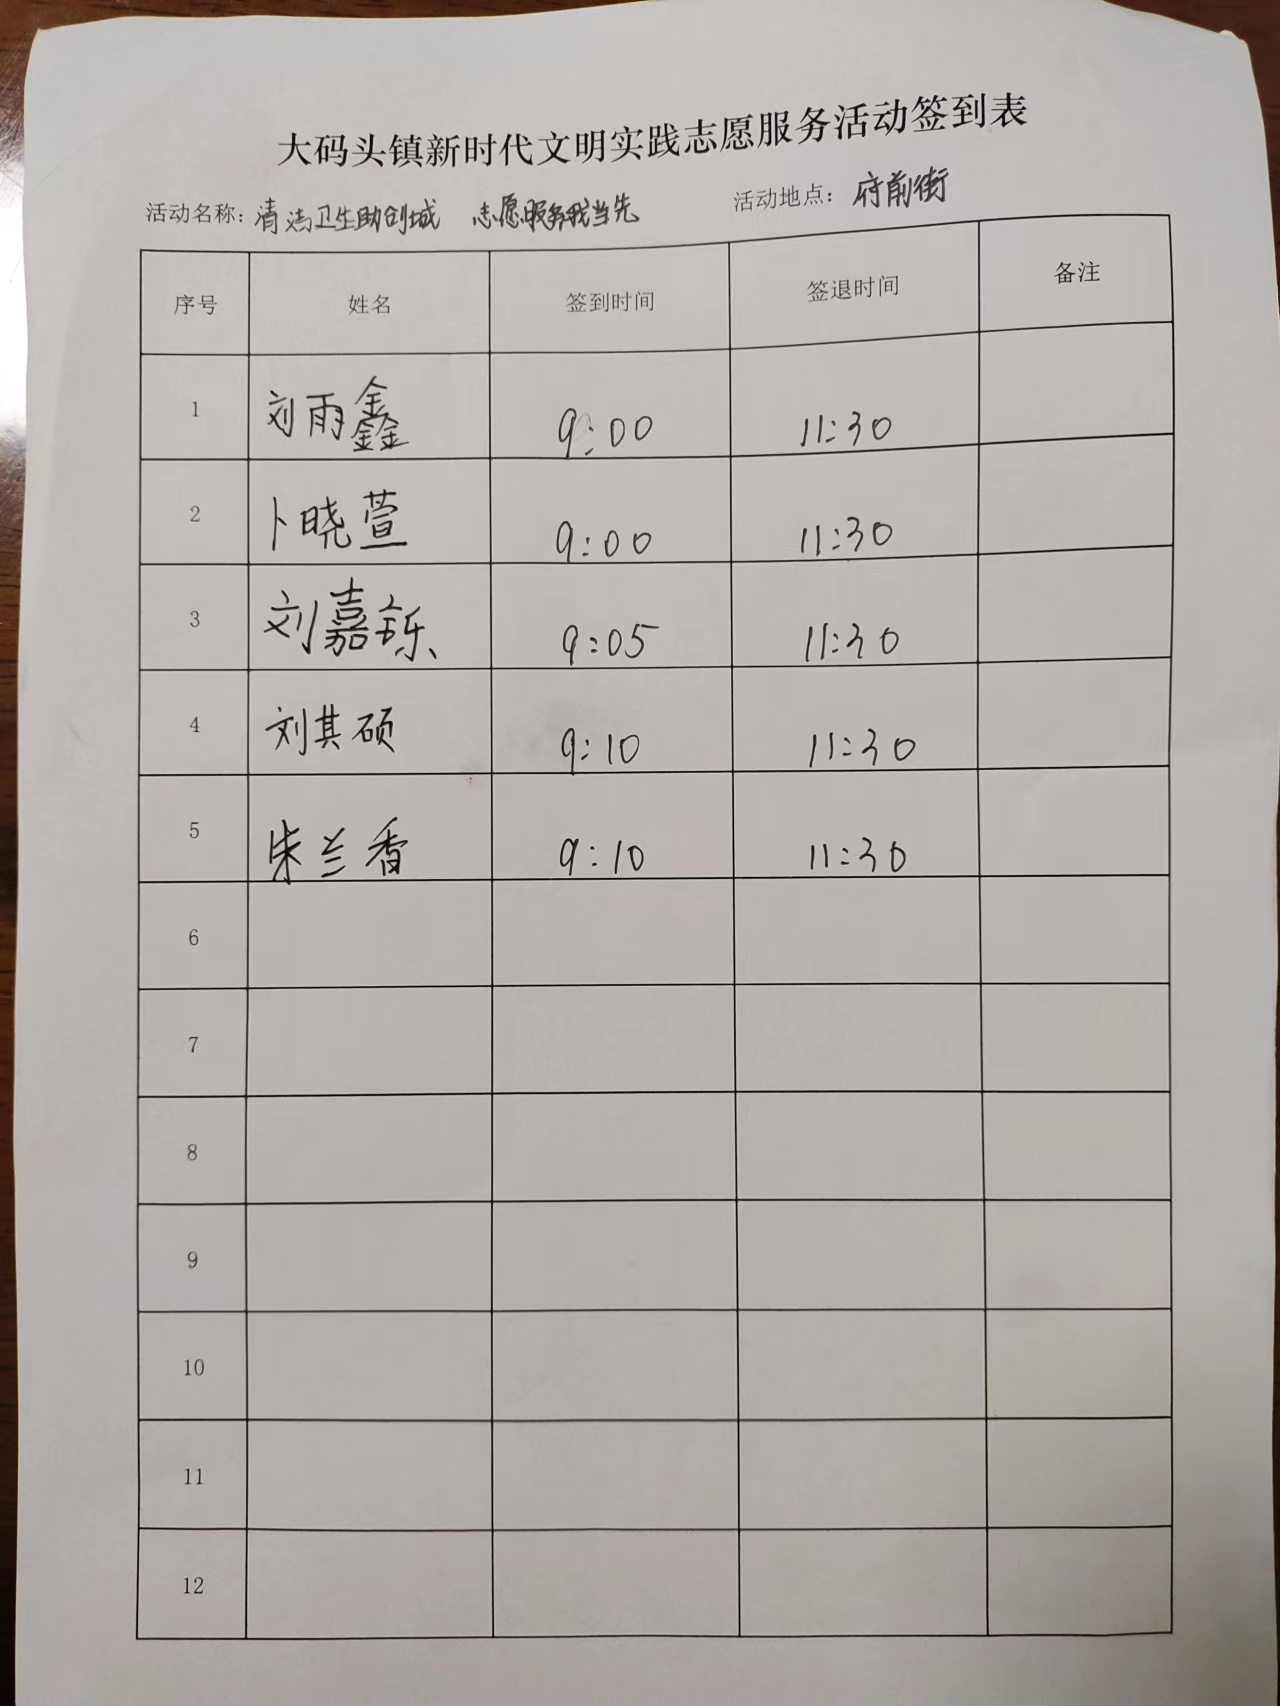 大码头镇新时代文明实践志愿服务活动签到表
活动名称：清洁卫生助创城 志愿服务我当先 活动地点：府前街
序号 姓名 签到时间 签退时间 备注
1 刘雨鑫 9:00 11:30
2 卜晓萱 9:00 11:30
3 刘嘉铄 9:05 11:30
4 刘其硕 9:10 11:30
5 朱兰香 9:10 11:30
6
7
8
9
10
11
12